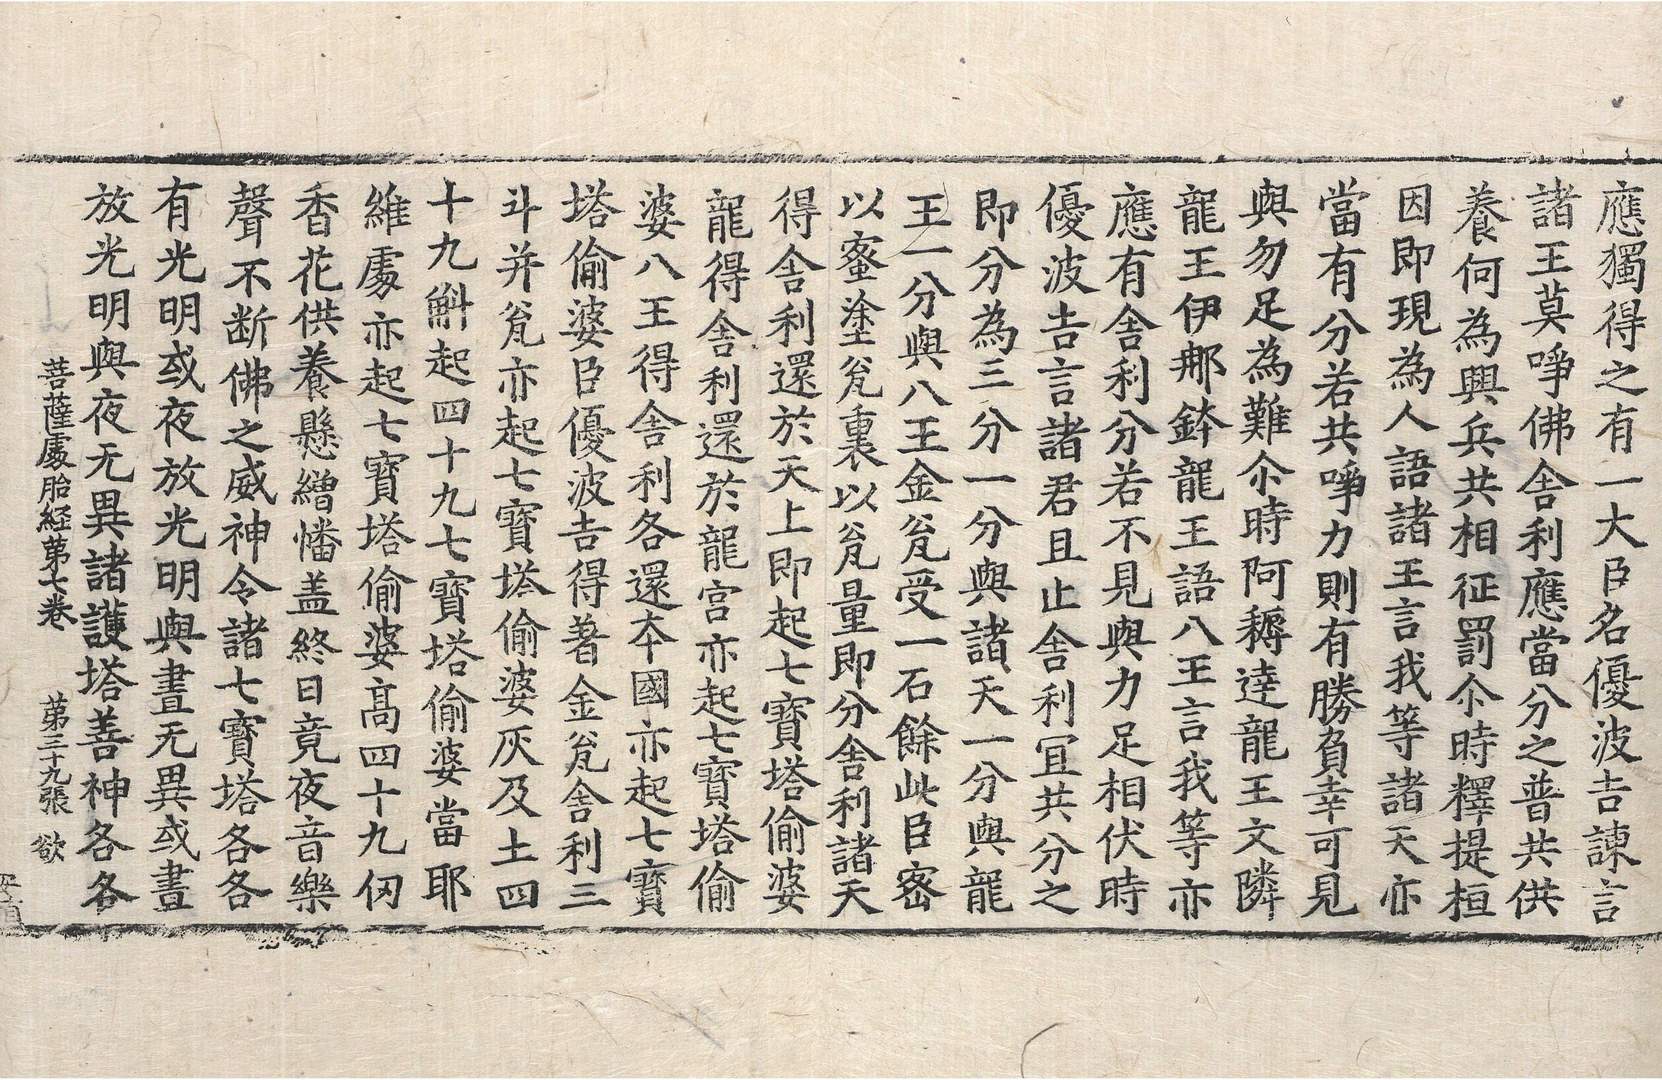 應獨得之有一大臣名優波吉諫言
諸王莫諍佛舍利應當分之普共供
養何為興兵共相征罰尒時釋提桓
因即現為人語諸王言我等諸天亦
當有分若共諍力則有勝負幸可見
與勿足為難尒時阿耨達龍王文隣
龍王伊那鉢龍王語八王言我等亦
應有舍利分若不見與力足相伏時
優波吉言諸君且止舍利冝共分之
即分為三分一分與諸天一分與龍
王一分與八王金瓮受一石餘此臣密
以蜜塗瓮裏以瓮量即分舍利諸天
得舍利還於天上即起七寶塔偷婆
龍得舍利還於龍宮亦起七寶塔偷
婆八王得舍利各還本國亦起七寶
塔偷婆臣優波吉得著金瓮舍利三
斗并瓮亦起七寶塔偷婆灰及土四
十九斛起四十九七寶塔偷婆當耶
維處亦起七寶塔偷婆高四十九仞
香花供養懸繒幡盖終日竟夜音樂
聲不断佛之威神令諸七寶塔各各
有光明或夜放光明與晝无異或晝
放光明與夜无異諸護塔善神各各
菩薩處胎経第七卷　第三十九張　欲